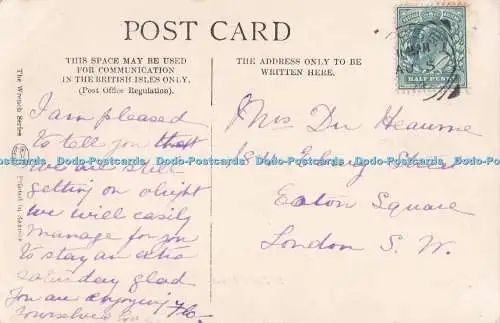 POST CARD
THIS SPACE MAY BE USED
FOR COMMUNICATION
IN THE BRITISH ISLES ONLY.
(Post Office Regulation).
THE ADDRESS ONLY TO BE
WRITTEN HERE.
HALF PENNY
The Wrench Series
Printed in Saxony
I am pleased
to tell you that
we are still
getting on alright
we will easily
manage for you
to stay an extra
day glad
you are enjoying
yourselves
Mrs Du Heaume
Street
Eaton Square
London S. W.
Dodo-Postcards Dodo-Postcards Dodo-Postcards Dodo-Postcards Dodo-Postcards Dodo-Postcards